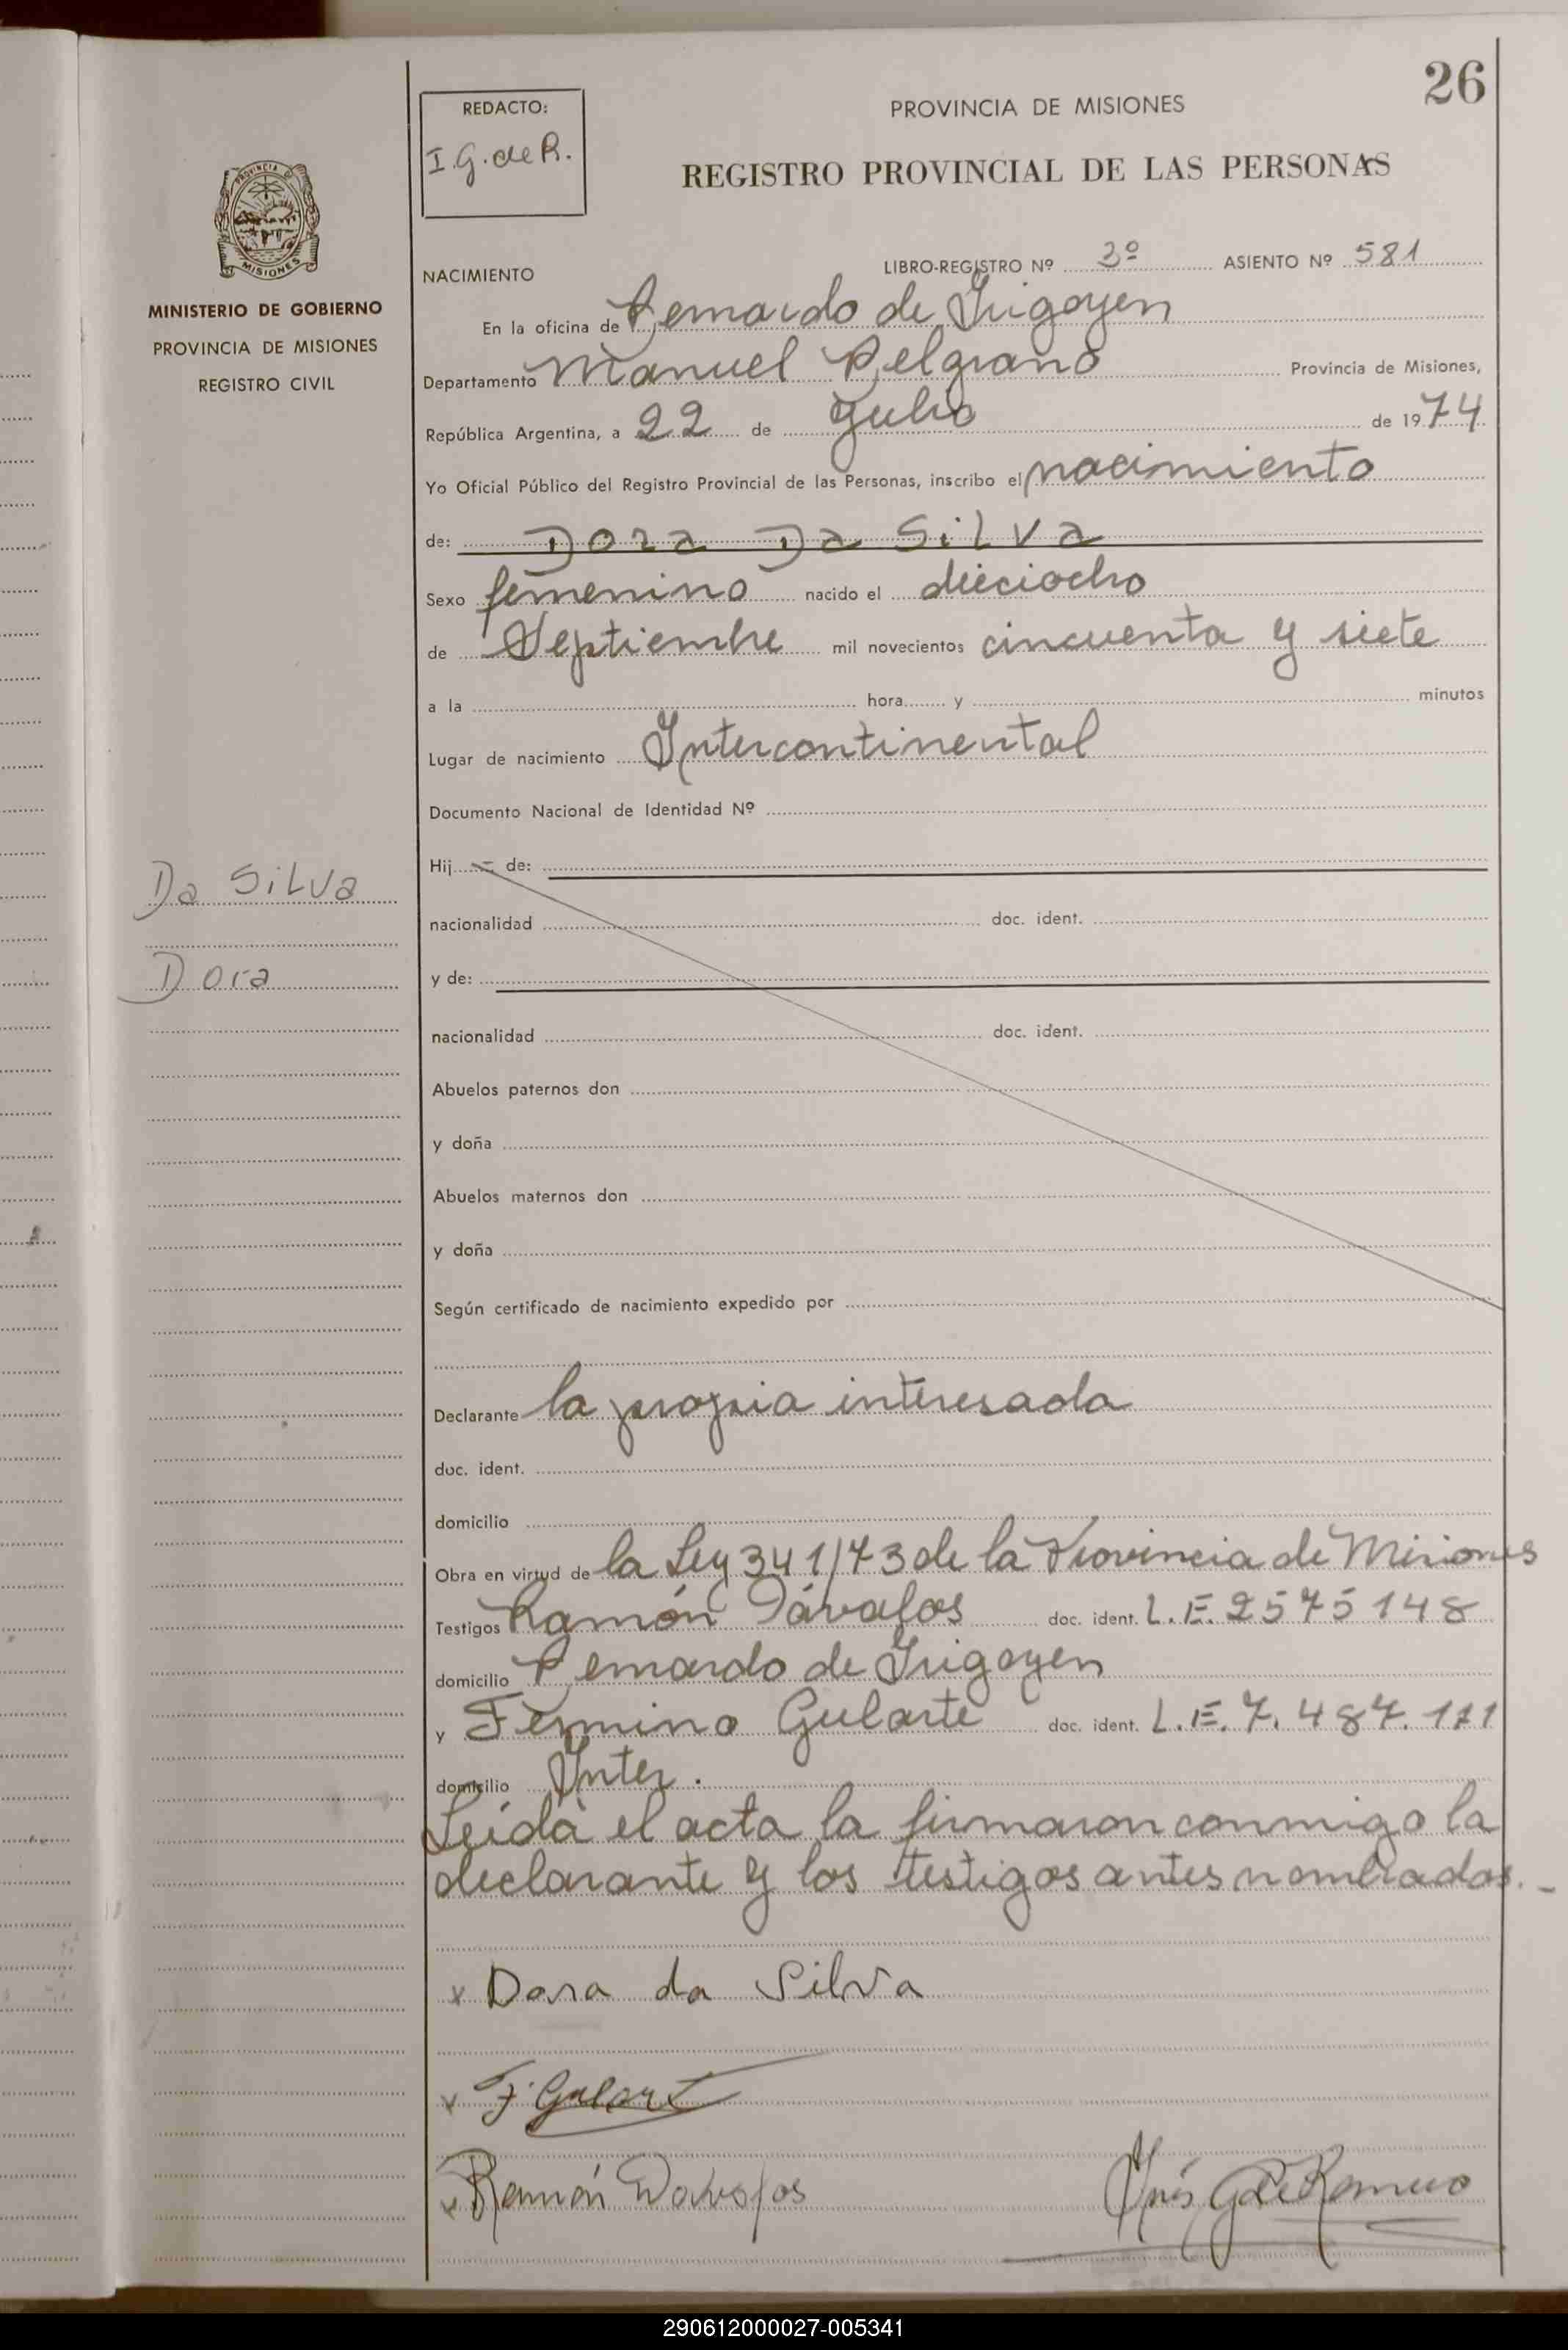 26
REDACTO:
I.G. de R.
PROVINCIA DE MISIONES
REGISTRO PROVINCIAL DE LAS PERSONAS
PROVINCIA D
MISIONES
MINISTERIO DE GOBIERNO
PROVINCIA DE MISIONES
REGISTRO CIVIL
NACIMIENTO LIBRO-REGISTRO Nº 3º ASIENTO Nº 581
En la oficina de Bernardo de Irigoyen
Departamento Manuel Belgrano Provincia de Misiones,
República Argentina, a 22 de Julio de 1974
Yo Oficial Público del Registro Provincial de las Personas, inscribo el nacimiento
de: Dora Da Silva
Sexo femenino nacido el dieciocho
de Septiembre mil novecientos cincuenta y siete
a la hora y minutos
Lugar de nacimiento Intercontinental
Documento Nacional de Identidad Nº
Hij de:
Da Silva
nacionalidad doc. ident.
Dora
y de:
nacionalidad doc. ident.
Abuelos paternos don
y doña
Abuelos maternos don
y doña
Según certificado de nacimiento expedido por
Declarante la propia interesada
doc. ident.
domicilio
Obra en virtud de la Ley 341/73 de la Provincia de Misiones
Testigos Ramón Dávalos doc. ident. L.E. 2575148
domicilio Bernardo de Irigoyen
y Fermino Gularte doc. ident. L.E. 7.487.111
domicilio Inter.
Leída el acta la firmaron conmigo la
declarante y los testigos antes nombrados.-
x Dora da Silva
x F Gulart
x Ramón Davalos Inés G de Romero
290612000027-005341